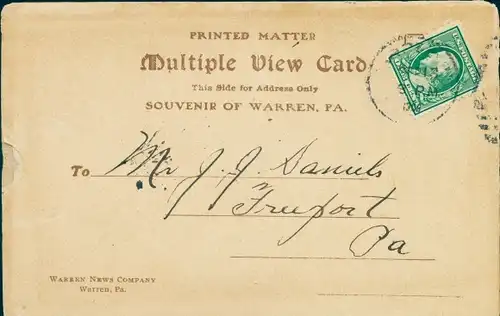 PRINTED MATTER
Multiple View Card
This Side for Address Only
SOUVENIR OF WARREN, PA.
To Mr J. J. Daniels
Freeport
Pa
WARREN NEWS COMPANY
Warren, Pa.